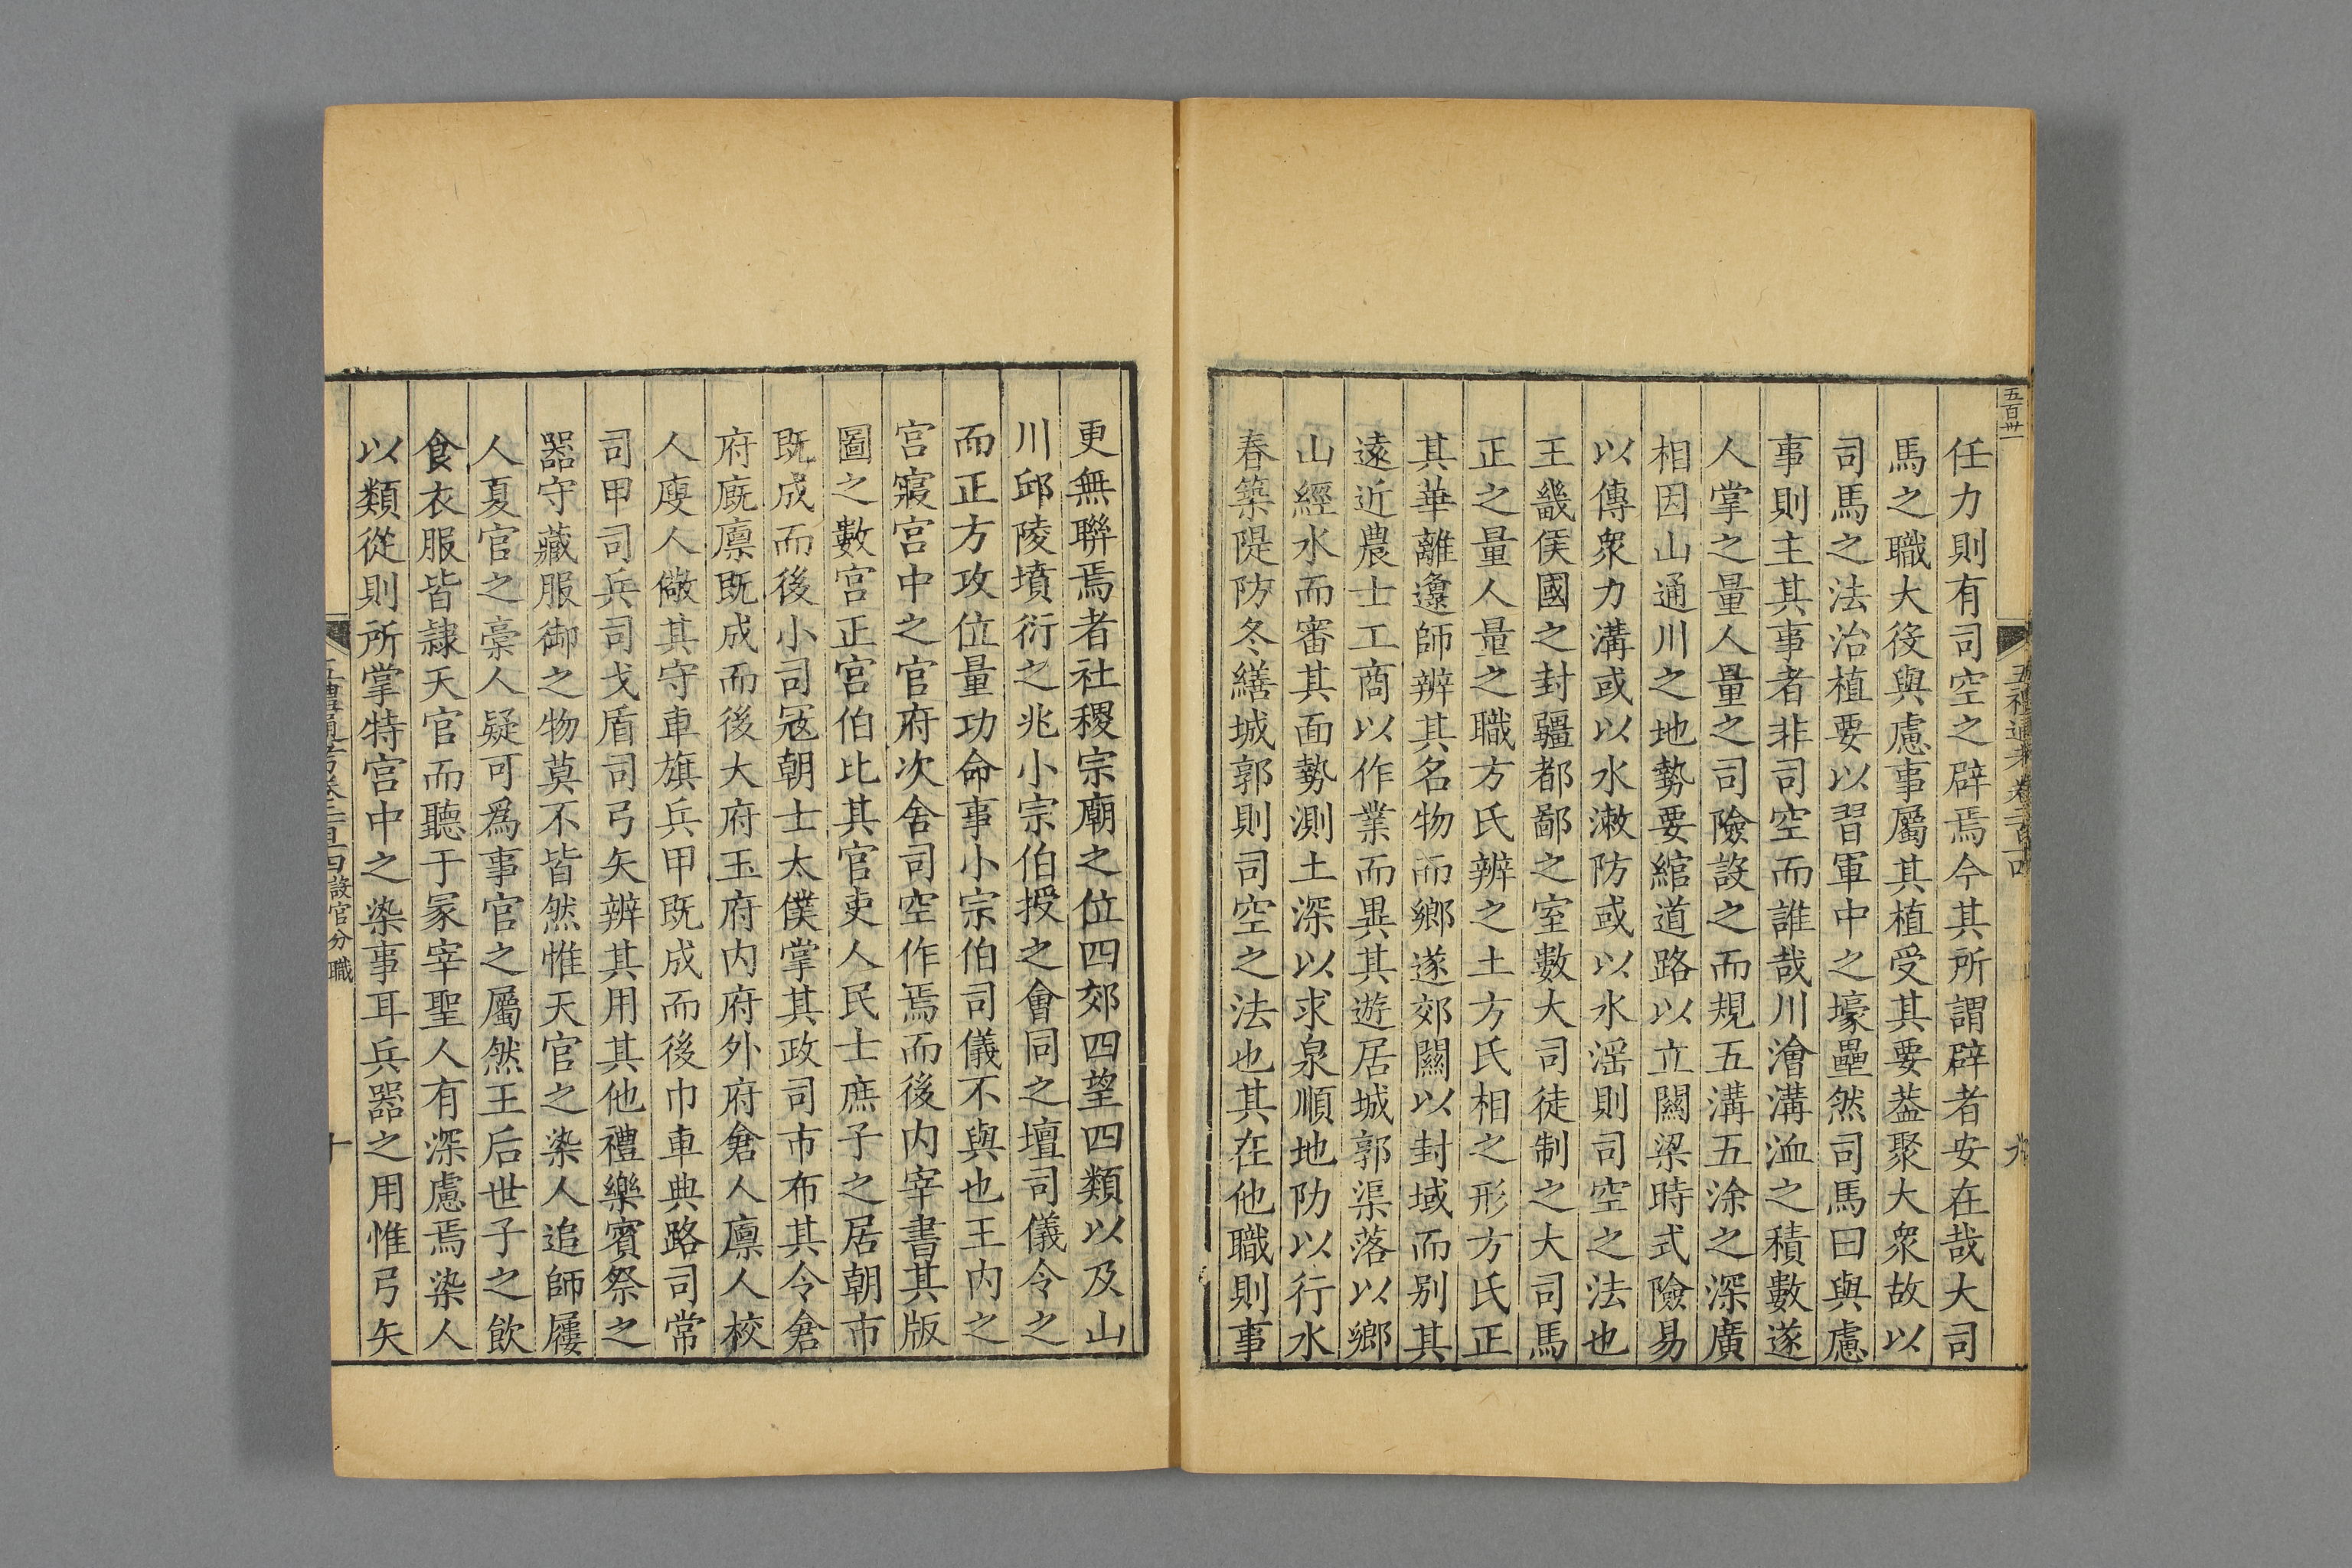 五百卅一
任力則有司空之辟焉今其所謂辟者安在哉大司
馬之職大役與慮事屬其植受其要葢聚大衆故以
司馬之法治植要以習軍中之壕壘然司馬曰與慮
事則主其事者非司空而誰哉川澮溝洫之積數遂
人掌之量人量之司險設之而規五溝五涂之深廣
相因山通川之地勢要綰道路以立關梁時式險易
以傳衆力溝或以水漱防或以水淫則司空之法也
王畿侯國之封疆都鄙之室數大司徒制之大司馬
正之量人量之職方氏辨之土方氏相之形方氏正
其華離邍師辨其名物而鄉遂郊關以封域而别其
遠近農士工商以作業而異其遊居城郭渠落以鄉
山經水而審其面勢測土深以求泉順地防以行水
春築隄防冬繕城郭則司空之法也其在他職則事
更無聯焉者社稷宗廟之位四郊四望四類以及山
川邱陵墳衍之兆小宗伯授之會同之壇司儀令之
而正方攻位量功命事小宗伯司儀不與也王内之
宫寢宫中之官府次舍司空作焉而後内宰書其版
圖之數宫正宫伯比其官吏人民士庶子之居朝市
既成而後小司寇朝士太僕掌其政司市布其令倉
府廐廪既成而後大府玉府内府外府倉人廪人校
人廋人儆其守車旗兵甲既成而後巾車典路司常
司甲司兵司戈盾司弓矢辨其用其他禮樂賓祭之
器守藏服御之物莫不皆然惟天官之染人追師屨
人夏官之槀人疑可爲事官之屬然王后世子之飲
食衣服皆隷天官而聽于冢宰聖人有深慮焉染人
以類從則所掌特宫中之染事耳兵器之用惟弓矢
設官分職
十